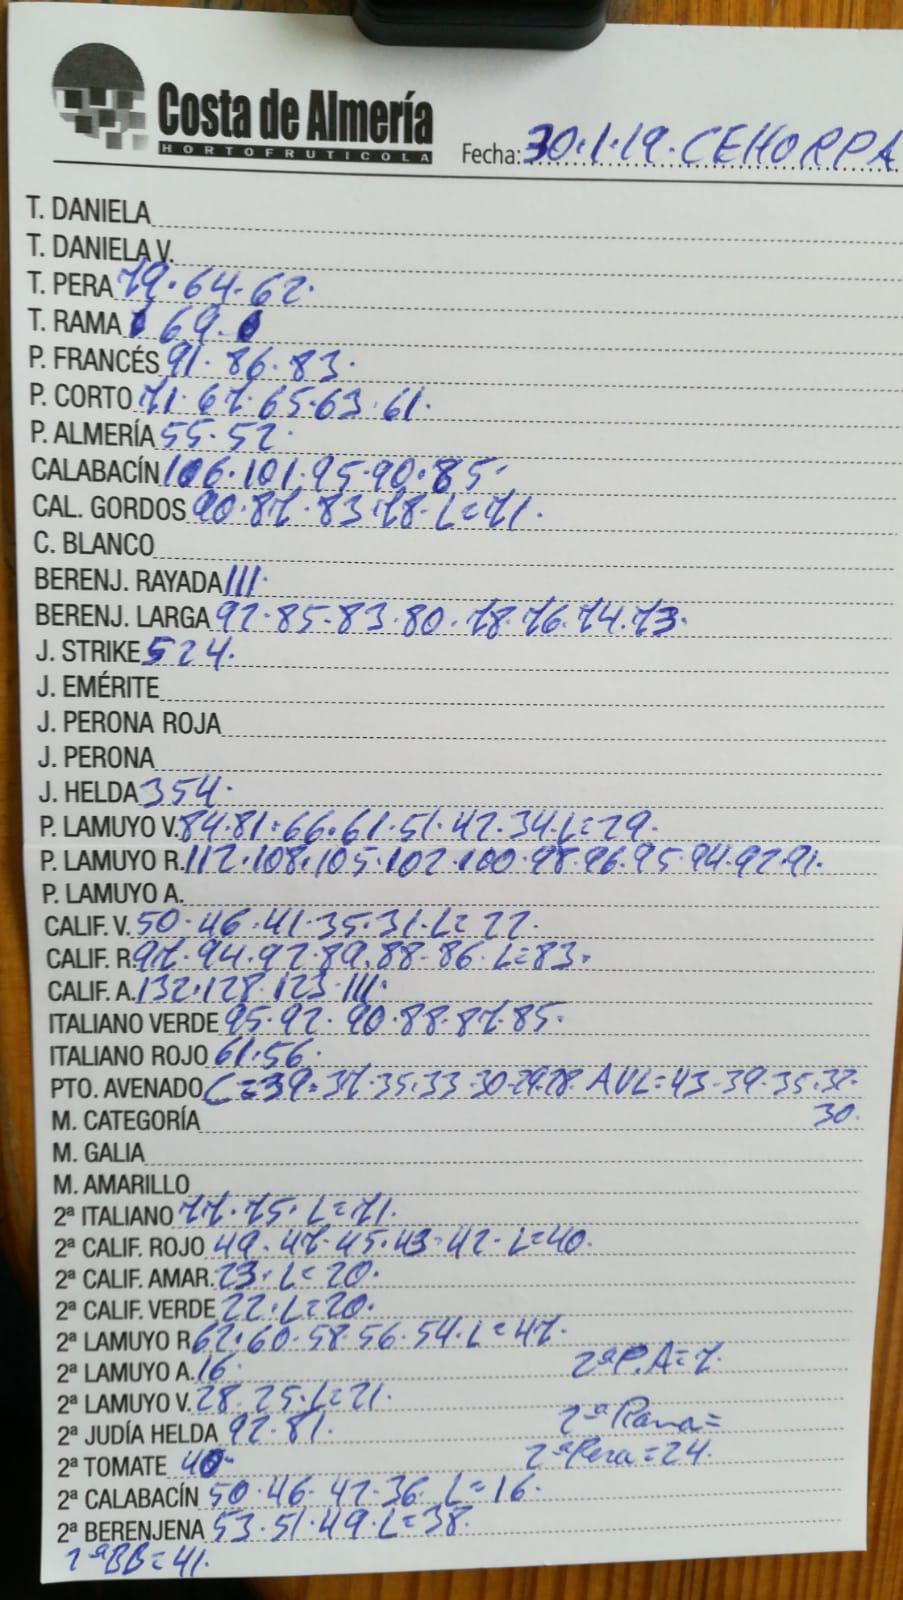 Costa de Almería
HORTOFRUTICOLA
Fecha: 30.1.19. CEHORPA
T. DANIELA
T. DANIELA V.
T. PERA 79.64.62.
T. RAMA 69.
P. FRANCÉS 91.86.83.
P. CORTO 71.67.65.63.61.
P. ALMERÍA 55.52.
CALABACÍN 106.101.95.90.85.
CAL. GORDOS 90.87.83.78.L=71.
C. BLANCO
BERENJ. RAYADA 111.
BERENJ. LARGA 92.85.83.80.78.76.74.73.
J. STRIKE 524.
J. EMÉRITE
J. PERONA ROJA
J. PERONA
J. HELDA 354.
P. LAMUYO V. 84.81.66.61.51.42.34.L=29.
P. LAMUYO R. 112.108.105.102.100.98.96.95.94.92.91.
P. LAMUYO A.
CALIF. V. 50.46.41.35.31.L=22.
CALIF. R. 97.94.92.89.88.86.L=83.
CALIF. A. 132.128.123.111.
ITALIANO VERDE 95.92.90.88.87.85.
ITALIANO ROJO 61.56.
PTO. AVENADO C=39.37.35.33.30.29.28. AVL=43.39.35.32.
30.
M. CATEGORÍA
M. GALIA
M. AMARILLO
2ª ITALIANO 77.75.L=71.
2ª CALIF. ROJO 49.47.45.43.42.L=40.
2ª CALIF. AMAR. 23.L=20.
2ª CALIF. VERDE 22.L=20.
2ª LAMUYO R. 62.60.58.56.54.L=47.
2ª LAMUYO A. 16 2ªP.A=7.
2ª LAMUYO V. 28.25.L=21.
2ª JUDÍA HELDA 92.81. 2ªRama=
2ª TOMATE 40. 2ªPera=24.
2ª CALABACÍN 50.46.42.36.L=16.
2ª BERENJENA 53.51.49.L=38.
2ªBB=41.